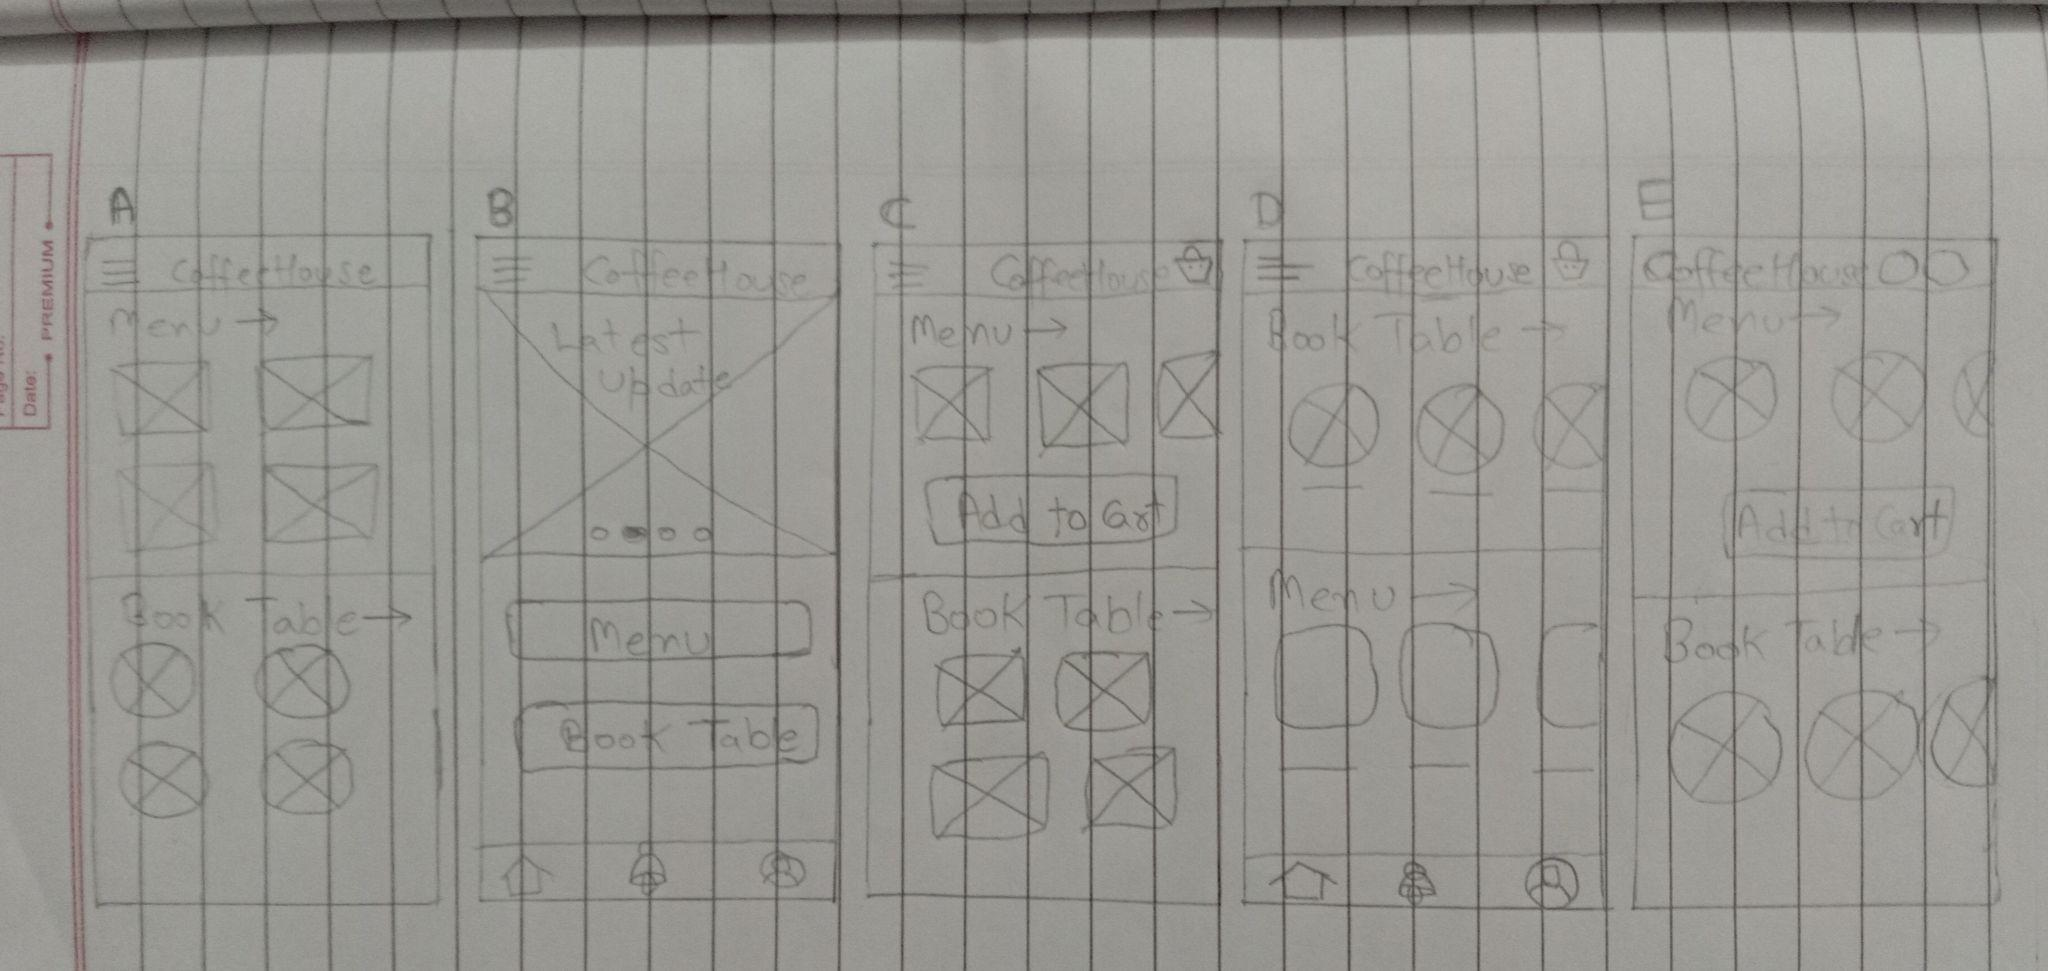 A
CoffeeHouse
Menu →
Book Table →
B
CoffeeHouse
Latest
Update
Menu
Book Table
C
CoffeeHouse
Menu →
Add to Cart
Book Table →
D
CoffeeHouse
Book Table →
Menu →
E
CoffeeHouse
Menu →
Add to Cart
Book Table →
Date:
PREMIUM